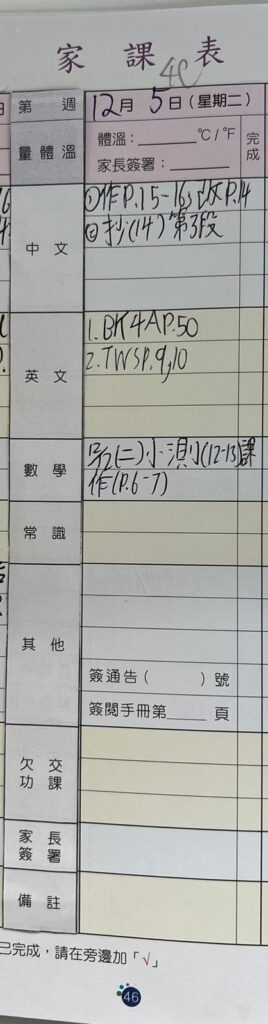 家 課 表
4C
第 週
12月 5日(星期二)
量 體 溫
體溫：______°C/°F
家長簽署：______
完成
中 文
①作P.15-16,改P.14
②抄(14)第3段
英 文
1.BK4AP.50
2.TWSP.9,10
數 學
(二)小測(12-13)課
作(P.6-7)
常 識
其 他
簽通告( )號
簽閱手冊第____頁
欠 交
功 課
家 長
簽 署
備 註
已完成，請在旁邊加「√」
46